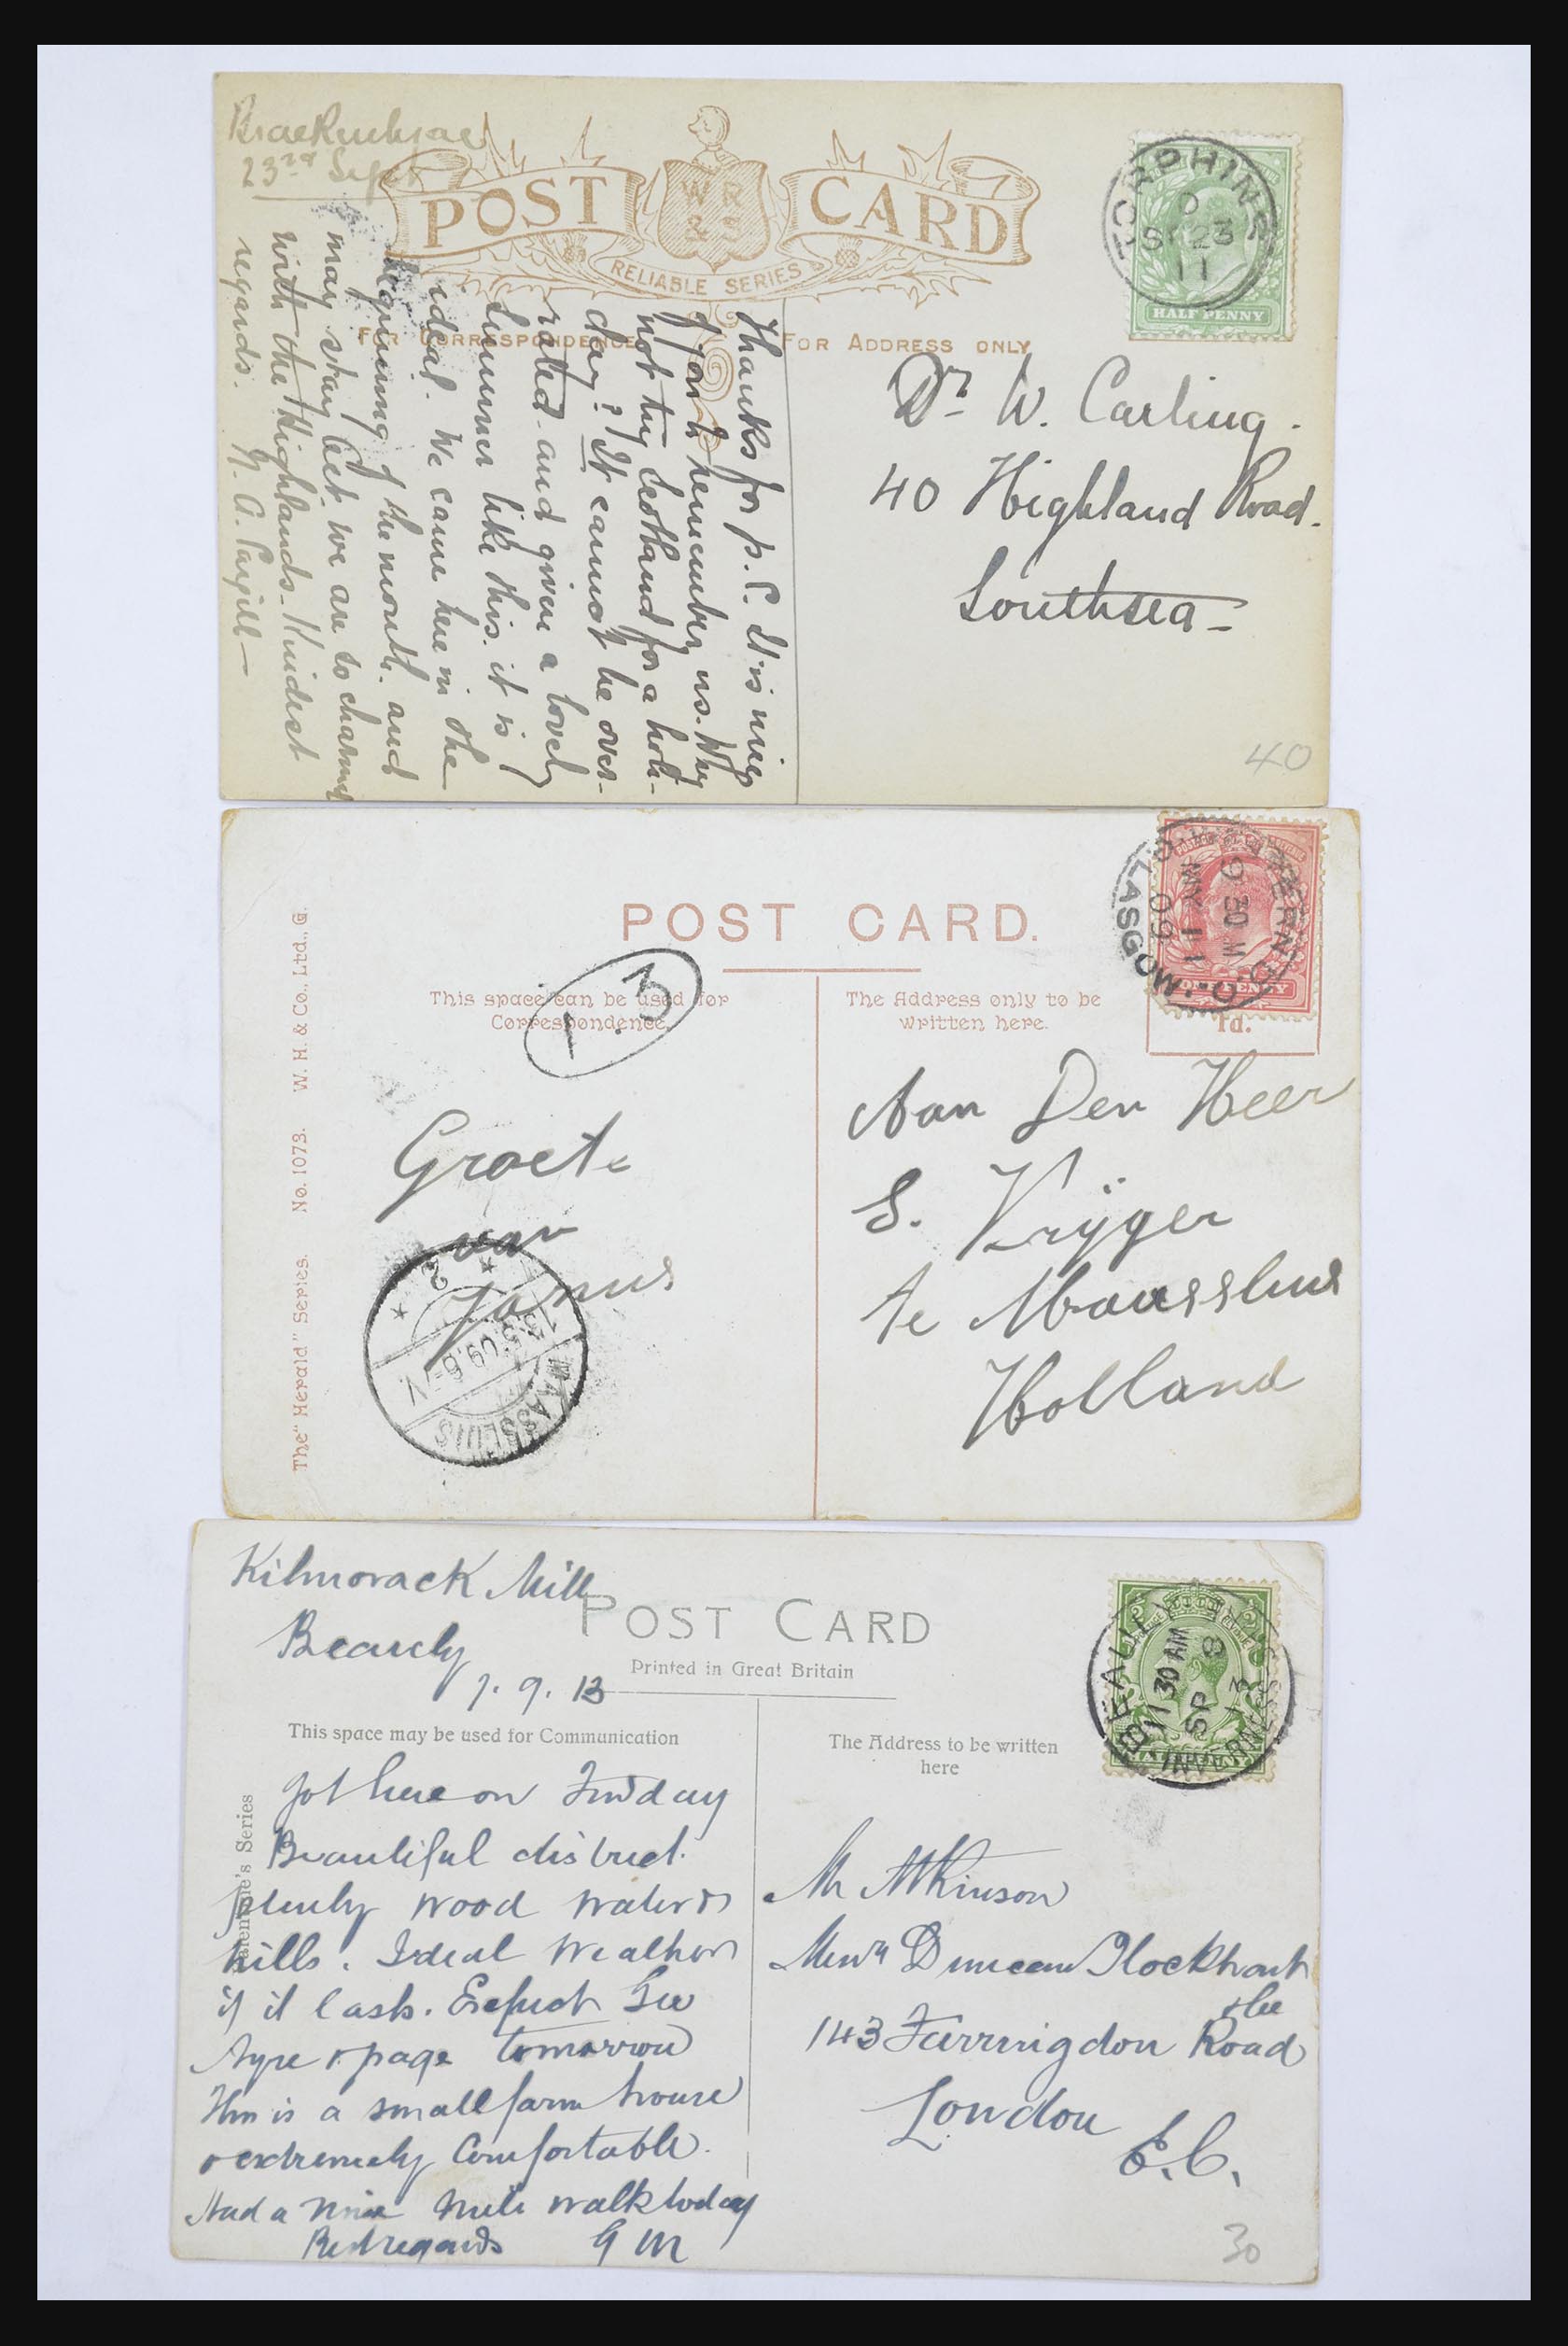 23rd Sept
POST CARD
W R & S
RELIABLE SERIES
FOR CORRESPONDENCE
FOR ADDRESS ONLY
HALF PENNY
SP 23
11
Thanks for p.c. It is nice
of you to remember us. Why
not try Scotland for a holi-
day? It cannot be over-
rated and given a lovely
Summer like this it is
ideal. We came here in the
beginning of the month and
may stay Oct. we are so charmed
with the Highlands. Kindest
regards. N. A. Cargill
Dr W. Carling.
40 Highland Road.
Southsea
40
POST CARD.
This space can be used for
Correspondence.
The Address only to be
written here.
1d.
ONE PENNY
GLASGOW
9 30
MY 11
09
The "Herald" Series. No. 1073. W. H. & Co., Ltd., G.
1.3
Groete
van
Janus
MAASSLUIS
13.5.09.6-7V
2
Aan Den Heer
S. Krijger
te Maassluis
Holland
Kilmorack Mill
Beauly
7.9.13
POST CARD
Printed in Great Britain
This space may be used for Communication
The Address to be written
here
BEAULY
INVERNESS
11 30 AM
8 SP
13
Valentine's Series
Got here on Friday
Beautiful district.
plenty wood water &
hills. Ideal Weather
if it lasts. Expect Geo
Ayre & page tomorrow
This is a small farm house
& extremely Comfortable.
Had a Nine Mile walk today
Best regards G M
Mr Atkinson
Messrs Duncan Flockhart
& Co
143 Farringdon Road
London
E.C.
30